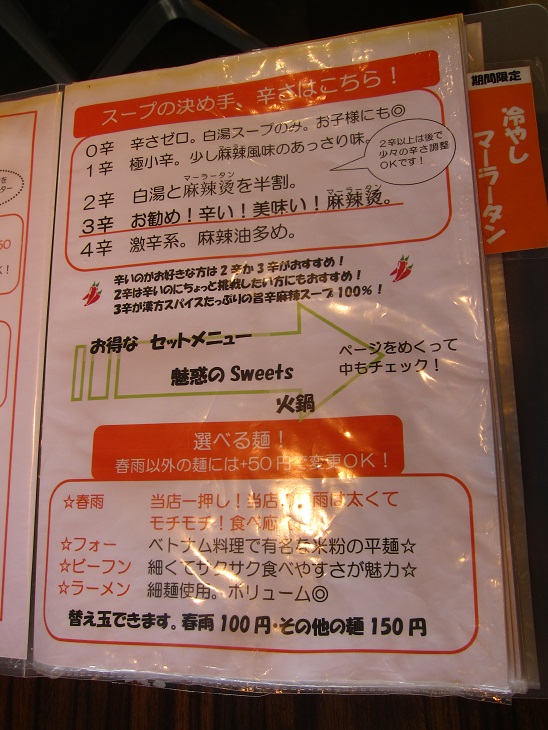 スープの決め手、辛さはこちら！
0辛 辛さゼロ。白湯スープのみ。お子様にも◎
1辛 極小辛。少し麻辣風味のあっさり味。
2辛 白湯と麻辣烫を半割。
マーラータン
3辛 お勧め！辛い！美味い！麻辣烫。
マーラータン
4辛 激辛系。麻辣油多め。
2辛以上は後で
少々の辛さ調整
OKです！
辛いのがお好きな方は2辛か3辛がおすすめ！
2辛は辛いのにちょっと挑戦したい方にもおすすめ！
3辛が漢方スパイスたっぷりの旨辛麻辣スープ100％！
お得な セットメニュー
魅惑の Sweets
火鍋
ページをめくって
中もチェック！
選べる麺！
春雨以外の麺には+50円で変更OK！
☆春雨 当店一押し！当店 雨は太くて
モチモチ！食べ応
☆フォー ベトナム料理で有名な米粉の平麺☆
☆ビーフン 細くてサクサク食べやすさが魅力☆
☆ラーメン 細麺使用。ボリューム◎
替え玉できます。春雨100円・その他の麺150円
期間限定
冷やし
マーラータン